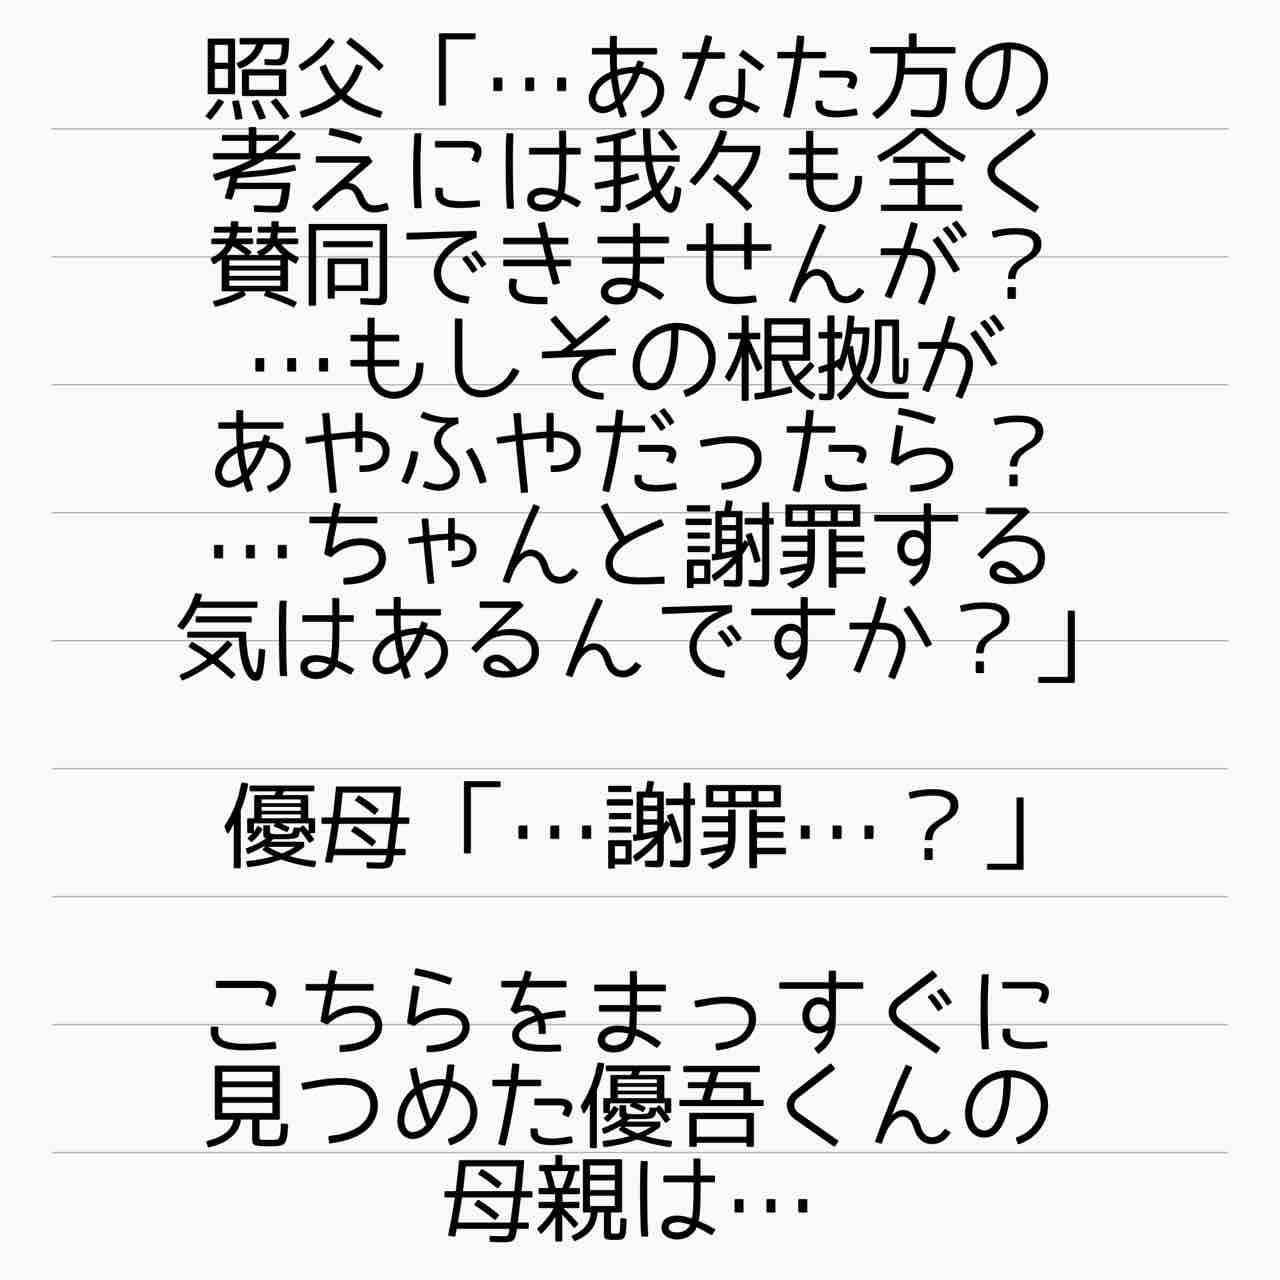 照父「…あなた方の
考えには我々も全く
賛同できませんが？
…もしその根拠が
あやふやだったら？
…ちゃんと謝罪する
気はあるんですか？」
優母「…謝罪…？」
こちらをまっすぐに
見つめた優吾くんの
母親は…